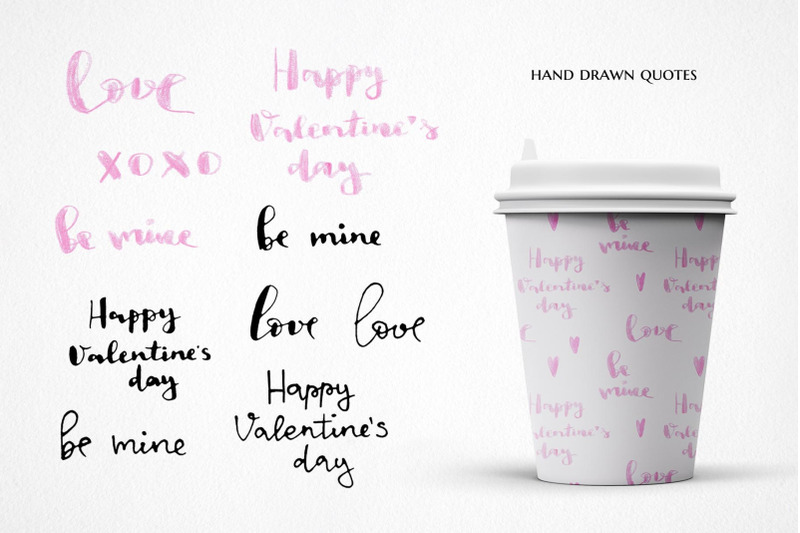 love
Happy
Valentine's
day
xoxo
be mine
be mine
Happy
Valentine's
day
love love
Happy
Valentine's
day
be mine
HAND DRAWN QUOTES
be
mine
Happy
Valentine's
day
Happy
Valentine's
day
love
be
mine
Happy
Valentine's
day
love